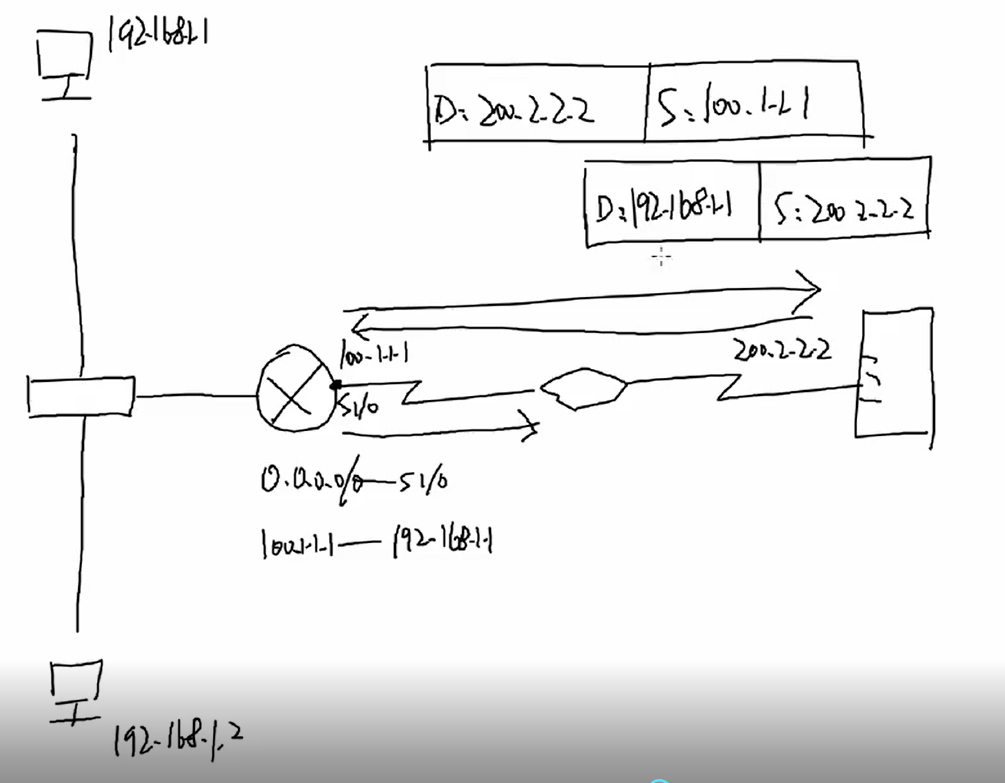 192.168.1.1
D: 200.2.2.2
S: 100.1.1.1
D: 192.168.1.1
S: 200.2.2.2
100.1.1.1
200.2.2.2
S1/0
0.0.0.0/0 — S1/0
100.1.1.1 — 192.168.1.1
192.168.1.2